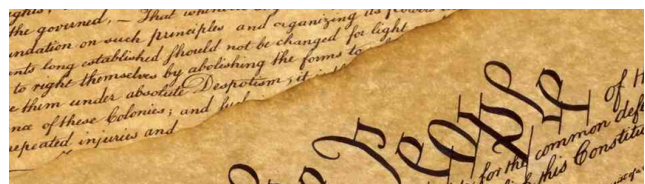 the governed, — That whenever
undation on such principles and organizing its powers
nts long established should not be changed for light
to right themselves by abolishing the forms to
e them under absolute Despotism; it is
nce of these Colonies; and such
repeated injuries and
People
of
for the common def
this Constitu